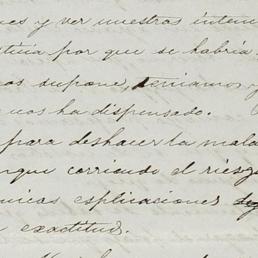 es y ver nuestros inten
por que se habría
os supone, teniamos y
nos ha dispensado.
para deshacer la mala
nque corriendo el riesg
nicas esplicaciones
exactitud.